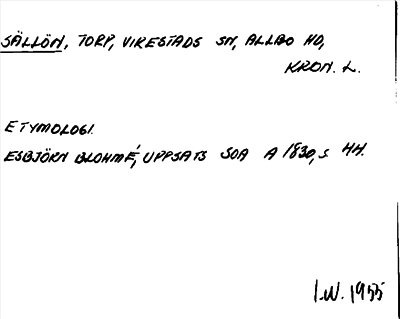 SÄLLÖN, TORP, VIRESTADS SN, ALLBO HD,
KRON. L.
ETYMOLOGI.
ESBJÖRN BLOHMÉ, UPPSATS SOA A 1830, S 44.
I.W. 1955